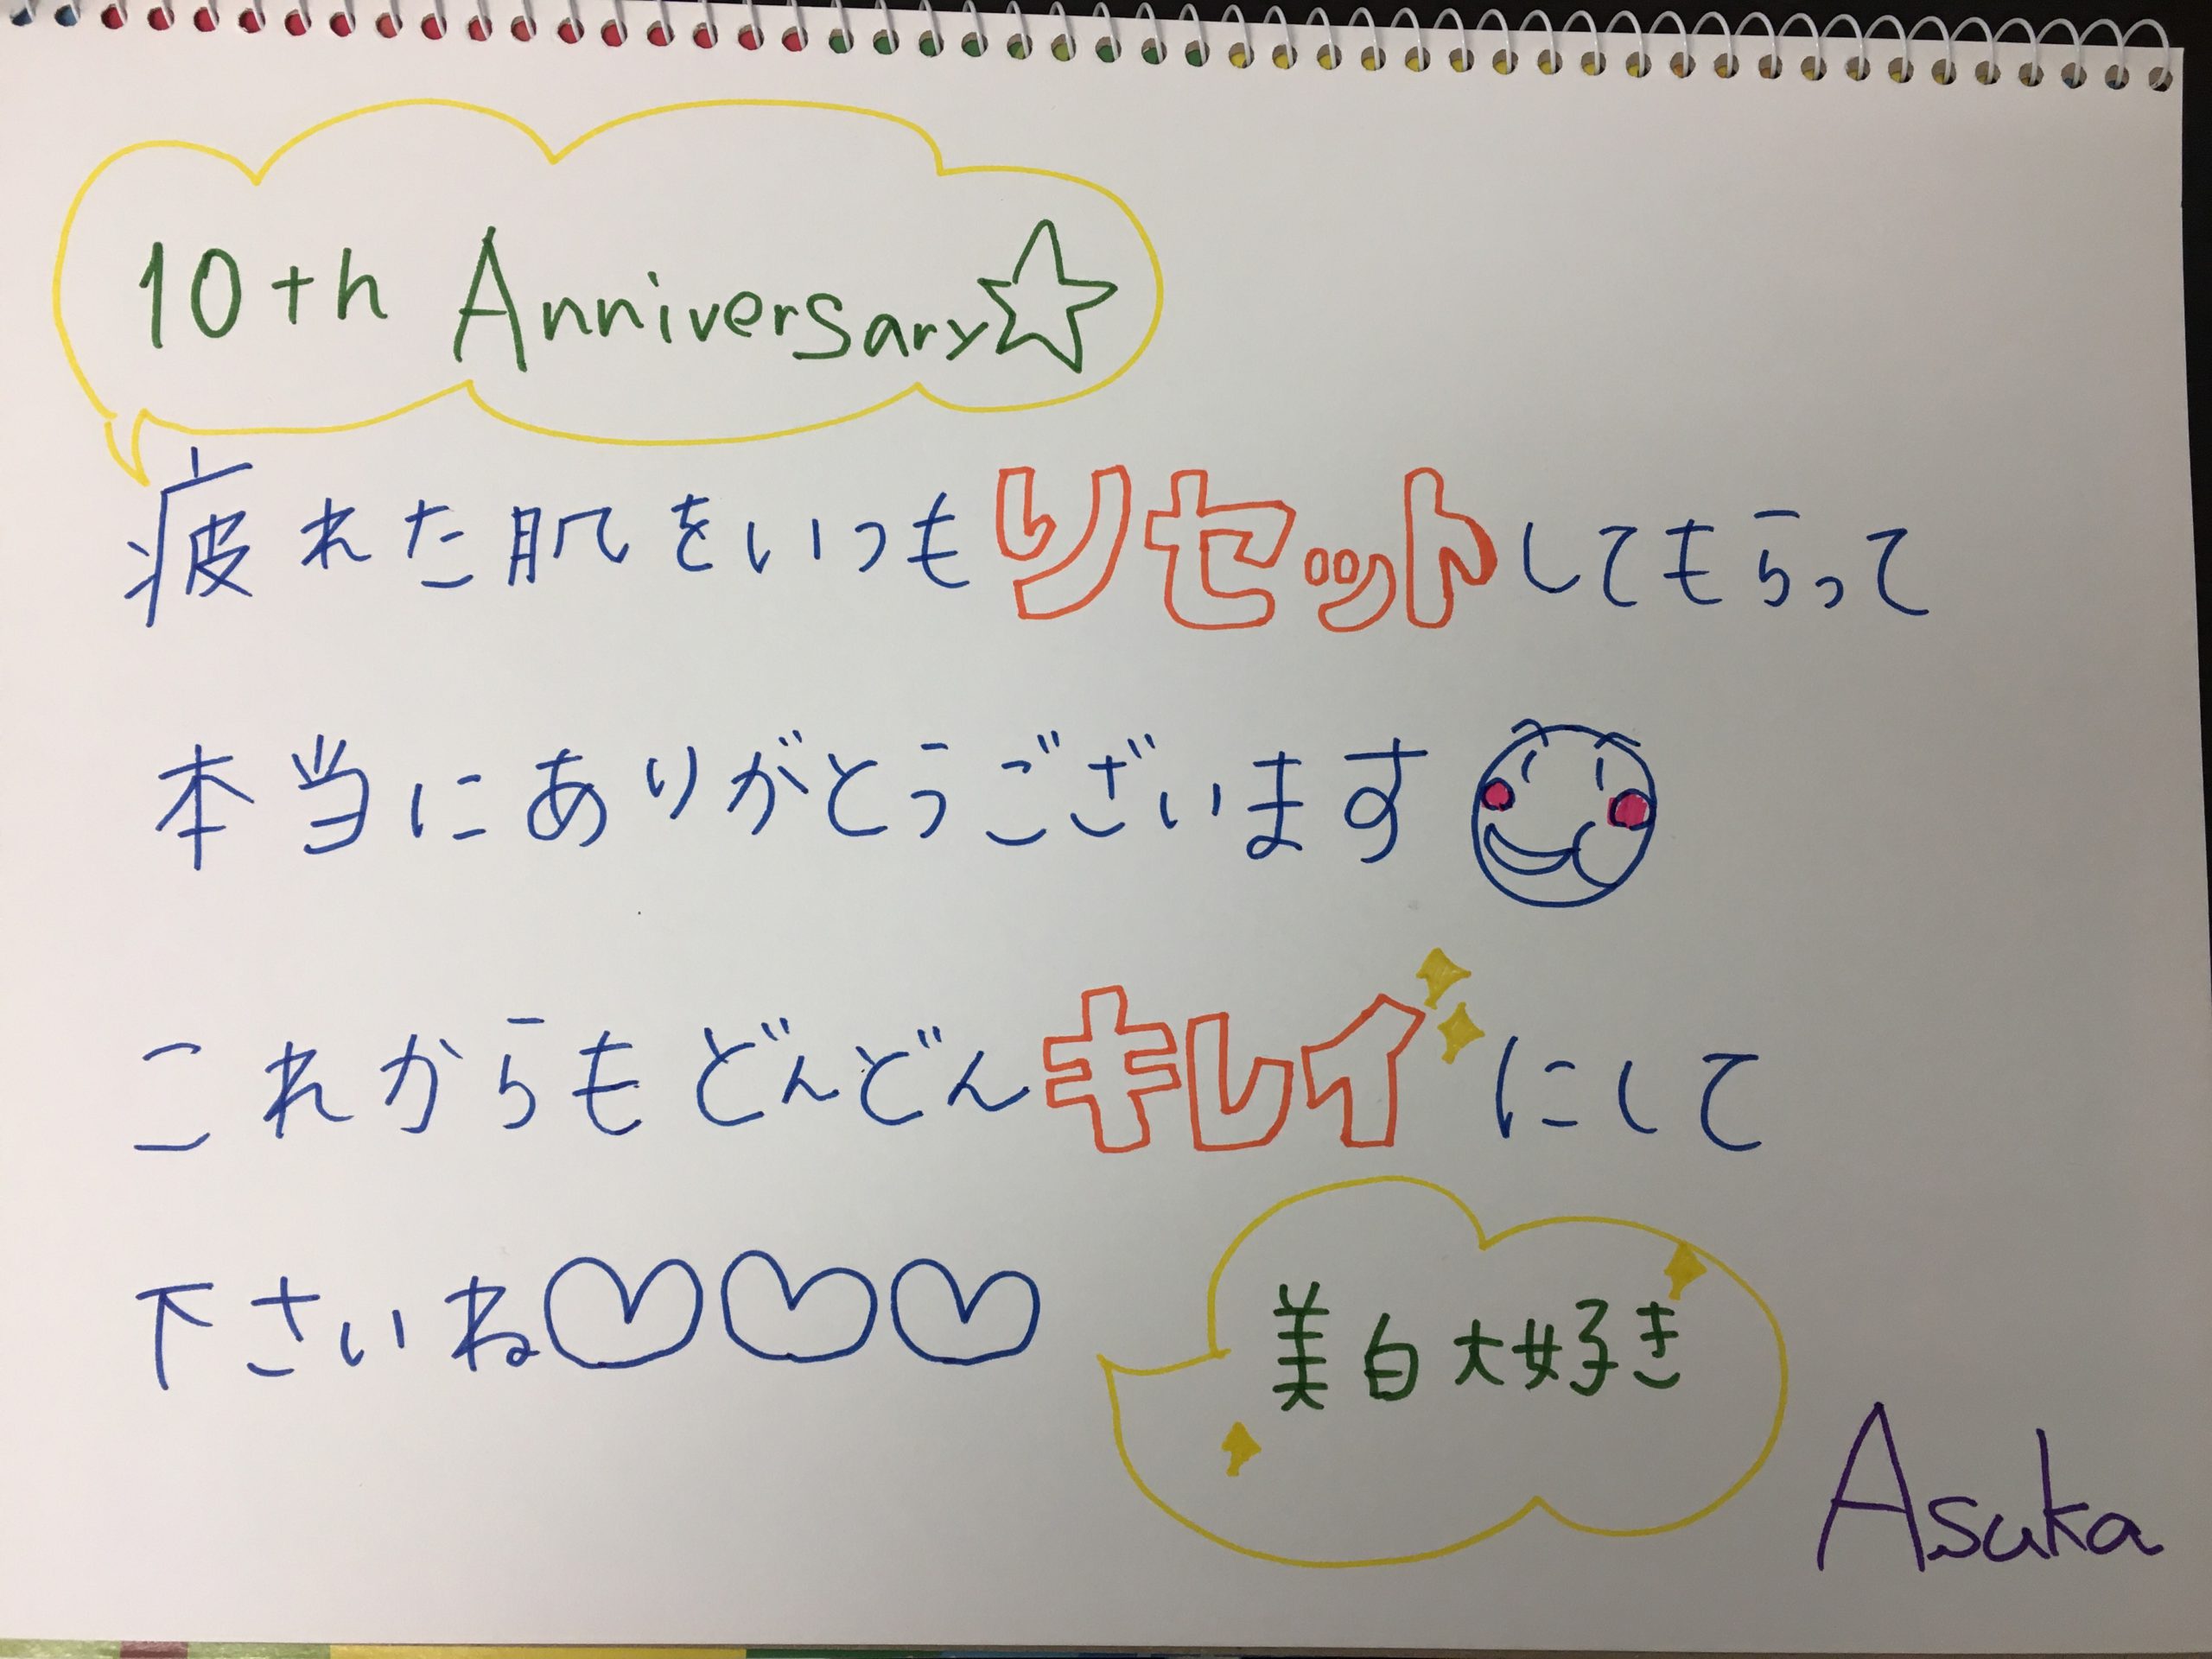 10th Anniversary☆
疲れた肌をいつもリセットしてもらって
本当にありがとうございます
これからもどんどんキレイにして
下さいね♡♡♡
美白大好き
Asuka